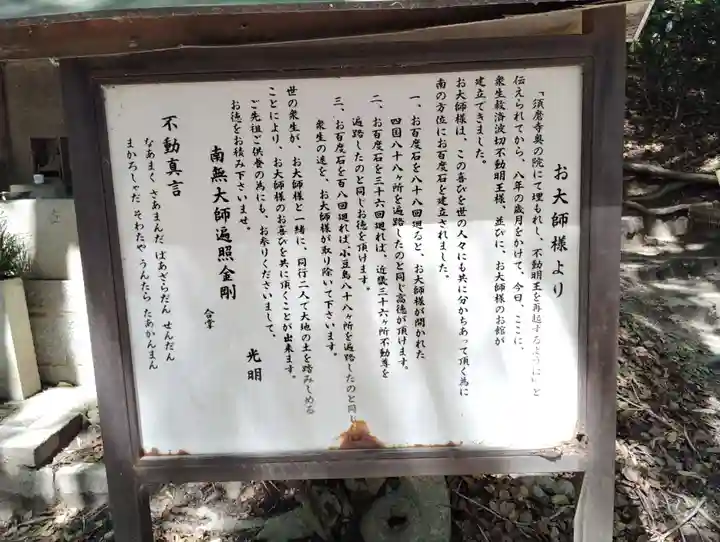 お大師様より
「須磨寺奥の院にて埋もれし、不動明王を再起するように」と
伝えられてから、八年の歳月をかけて、今日、ここに、
衆生救済波切不動明王様、並びに、お大師様のお館が
建立できました。
お大師様は、この喜びを世の人々にも共に分かちあって頂く為に
南の方位にお百度石を建立されました。
一、お百度石を八十八回廻ると、お大師様が開かれた
四国八十八ヶ所を遍路したのと同じ高徳が頂けます。
二、お百度石を三十六回廻れば、近畿三十六ヶ所不動尊を
遍路したのと同じお徳を頂けます。
三、お百度石を百八回廻れば、小豆島八十八ヶ所を遍路したのと同じ
衆生の迷を、お大師様が取り除いて下さいます。
世の衆生が、お大師様と一緒に、同行二人で大地の土を踏みしめる
ことにより、お大師様のお喜びを共に頂くことが出来ます。
ご先祖ご供養の為にも、お参りくださいまして、
お徳をお積み下さいませ。
光明
合掌
南無大師遍照金剛
不動真言
なあまく さあまんだ ばあざらだん せんだん
まかろしゃだ そわたや うんたら たあかんまん